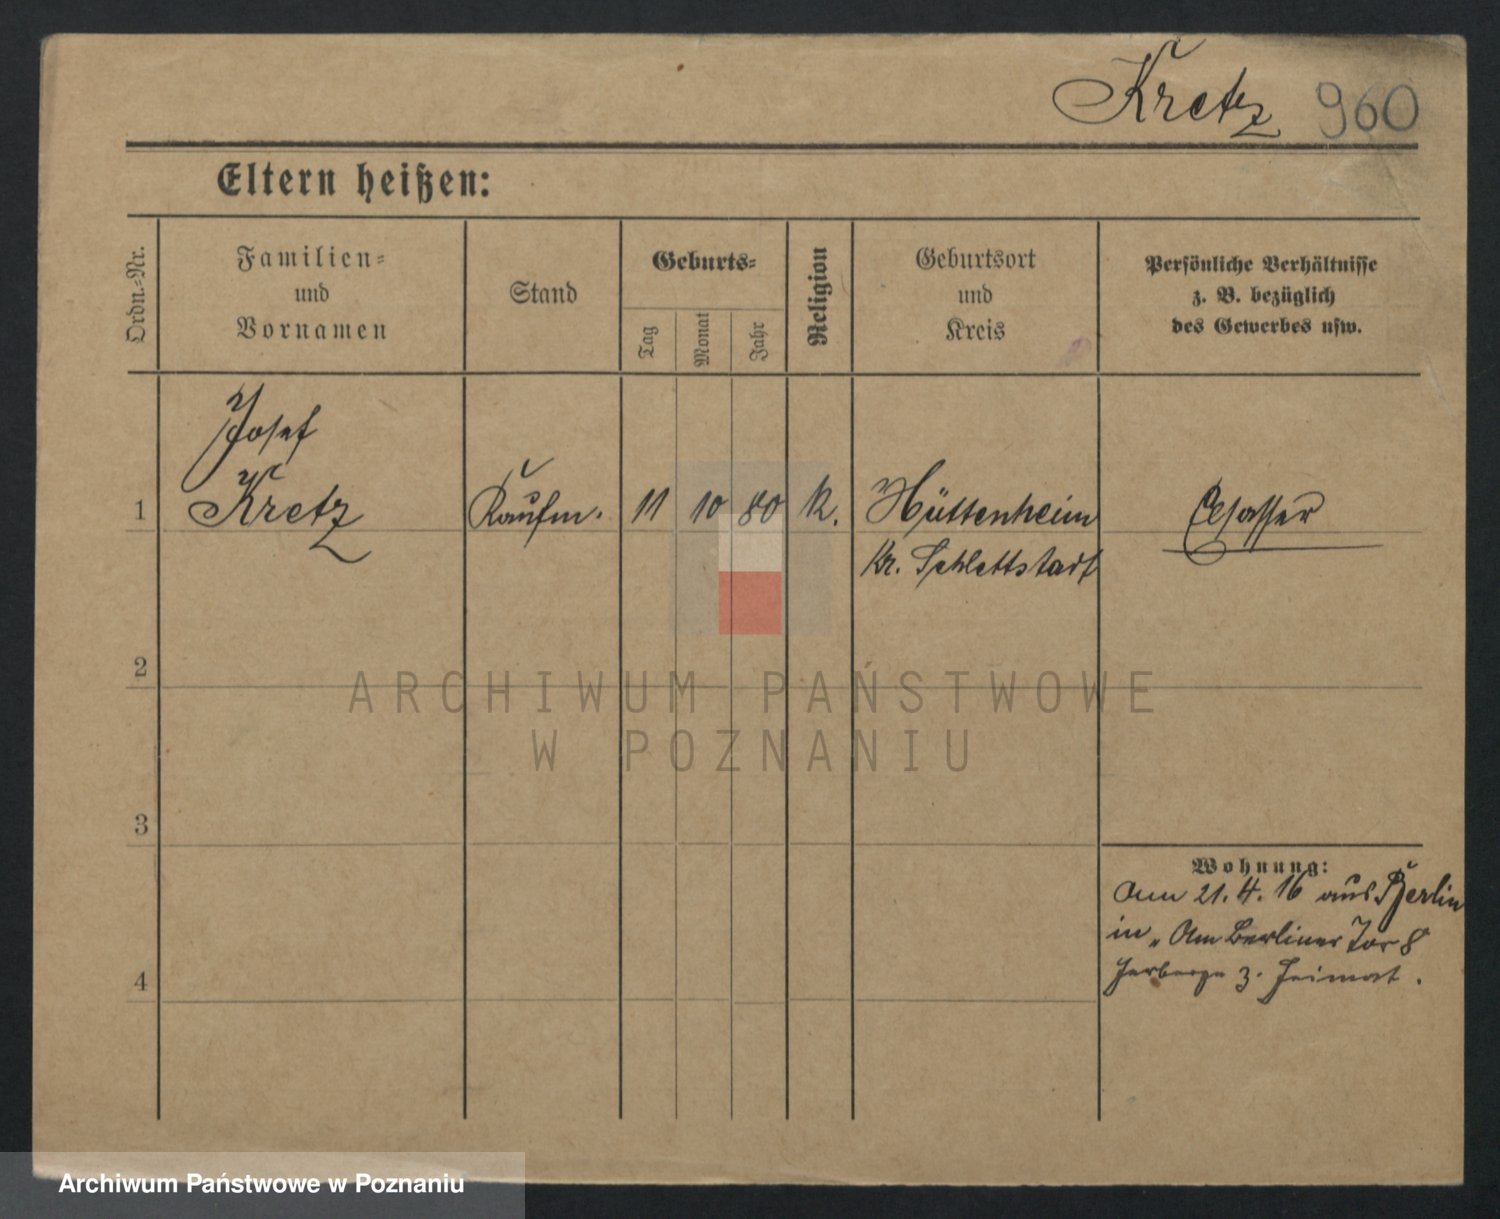 Kretz 960
Eltern heißen:
Ordn.-Nr.
Familien-
und
Vornamen
Stand
Geburts-
Tag
Monat
Jahr
Religion
Geburtsort
und
Kreis
Persönliche Verhältnisse
z. B. bezüglich
des Gewerbes usw.
Josef
1 Kretz Kaufm. 11 10 80 K. Hüttenheim Elsasser
Kr. Schlettstadt
2
ARCHIWUM PAŃSTWOWE
W POZNANIU
3
Wohnung:
Am 21.4.16 aus Berlin
in „Am Berliner Tor 8
Herberge z. Heimat.
4
Archiwum Państwowe w Poznaniu